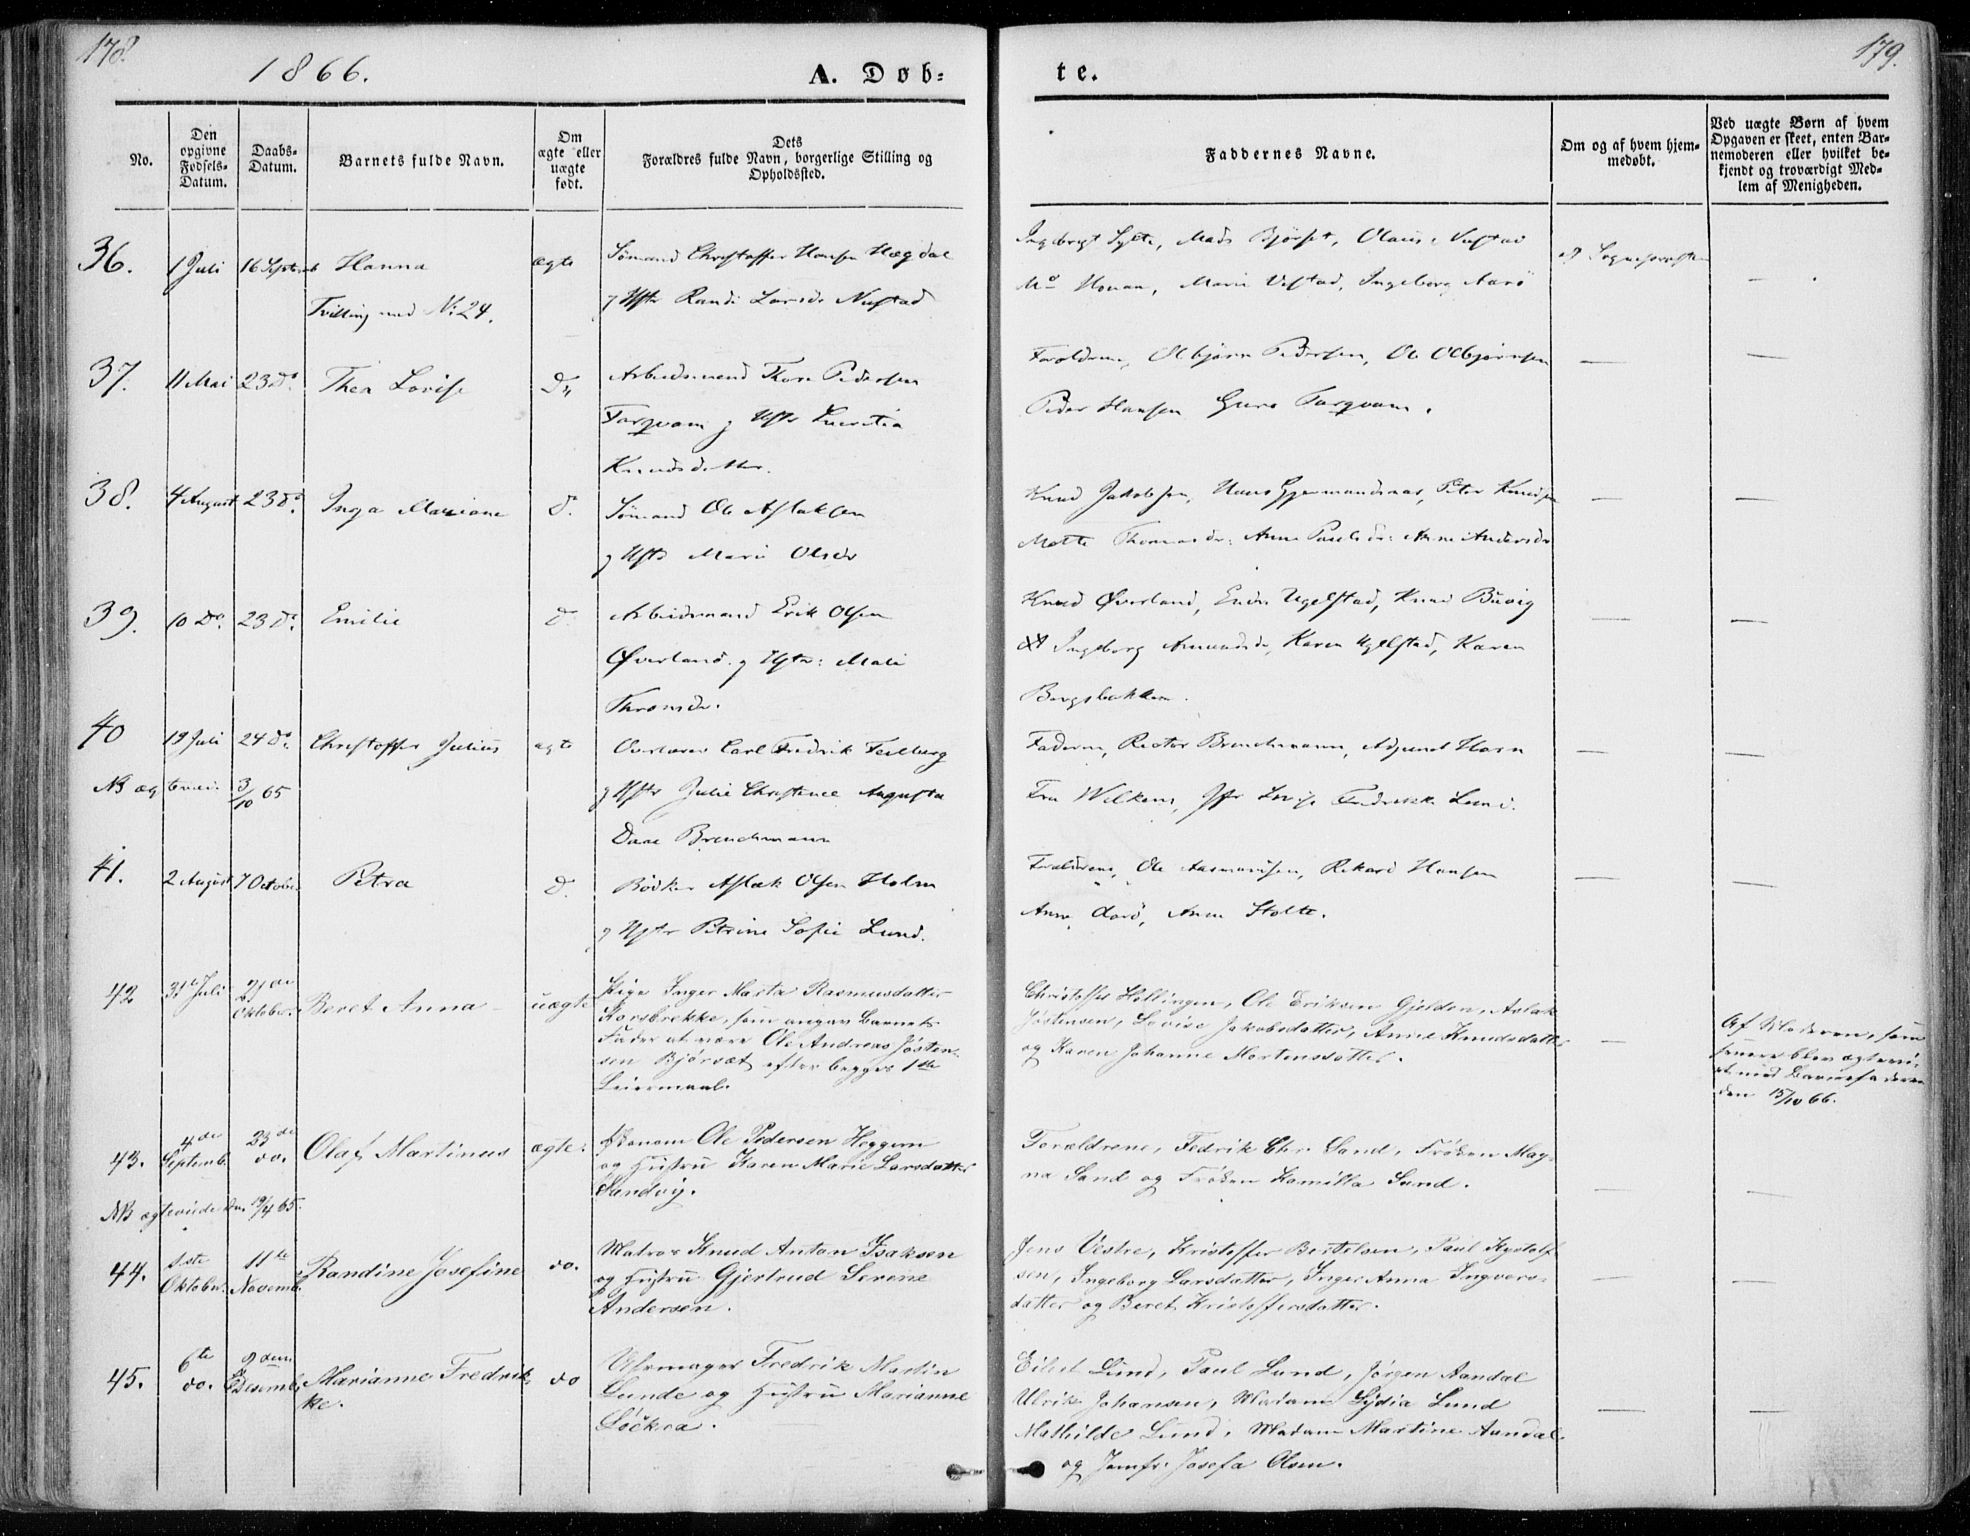 178.
1866.
A. Døb-
te.
179.
No.
Den opgivne Fødsels-Datum.
Daabs-Datum.
Barnets fulde Navn.
Om ægte eller uægte født.
Dets Forældres fulde Navn, borgerlige Stilling og Opholdssted.
Faddernes Navne.
Om og af hvem hjem-medøbt.
Ved uægte Børn af hvem Opgaven er skeet, enten Bar-nemoderen eller hvilket be-kjendt og troværdigt Med-lem af Menigheden.
36.
1 Juli
16 Septemb
Hanna
Tvilling med No 24.
ægte
Sømand Christoffer Hansen Hægdal
g Hstr Randi Larsdr Nustad
Ingebrigt Sylte, Mads Bjørset, Olaus Nustad
Mo Hovan, Marie Nustad, Ingeborg Aarø
af Sognepresten
37.
11 Mai
23 Do.
Thea Lovise
Do
Arbeidsmand Thore Pedersen
Farqvam g Hstr Lucretia
Knudsdatter.
Forældrene, Olbjørn Pedersen, Ole Olbjørnsen
Peder Hansen Guro Farqvam.
38.
4 August
23 Do.
Inga Mariane
d.
Sømand Ole Aslaksen
g Hstr Marie Olsdr
Knud Jakobsen, Hans Gjermundnæs, Peter Knudsen
Mette Thomasdr. Anne Paulsdr. Anne Andersdr
39.
10 Do.
23 Do.
Emilie
d.
Arbeidsmand Erik Olsen
Øverland. g Hstr: Mali
Thronsdr.
Knud Øverland, Endre Ugelstad, Knud Buvig
Ingeborg Amundsdr, Karen Ugelstad, Karen
Bergsbakken.
40
19 Juli
24 Do.
Christoffer Julius
ægte
Overlærer Carl Fredrik Feilberg
g Hstr Julie Christence Augusta
Daae Brinchmann
Faderen, Rector Brinchmann, Adjunct Horn
Fru Wilkens, Jfr Lovise Fredrikke Lund.
NB ægteviet 3/10 65
41.
2 August
7 Octobr.
Petra
d.
Bødker Aslak Olsen Holm
g Hstr Petrine Sofie Lund.
Forældrene, Ole Aasmundsen, Rikard Hansen
Anne Aarø, Anne Stolte.
42
31te Juli
21de Oktober.
Beret Anna
uægte
Pige Inger Marta Rasmusdatter
Korsbrekke, som angav Barnets
Fader at være Ole Andreas Jøsten-
sen Bjørsæt efter begges 1ste
Leiermaal.
Christoffer Hellingen, Ole Eriksen Gjelden, Aslak
Jøstensen, Lovise Jakobsdatter, Anne Knudsdatter
og Karen Johanne Mortensdatter.
Af Moderen, som
senere blev ægtevi-
et med Barnefaderen
den 15/10 66.
43.
4de Septemb.
23de do.
Olaf Martinus
ægte.
Økonom Ole Pedersen Heggem
og Hustru Karen Marie Larsdatter
Sandvig.
Forældrene, Fedrik Chr. Sand, Frøken Mag-
na Sand og Frøken Kamilla Sand.
NB ægteviede den 19/4 65.
44.
1ste Oktober.
11te Novemb.
Randine Josefine
do.
Matros Knud Anton Isaksen
og Hustru Gjertrud Serene
Andersen.
Jens Vestre, Kristoffer Bertelsen, Paul Kystolf
sen, Ingeborg Larsdatter, Inger Anna Ingvars-
datter og Beret Kristoffersdatter.
45.
6te do.
9den Desemb.
Marianne Fredrik-
ke.
do
Uhrmager Fredrik Martin
Lunde og Hustru Marianne
Løckra.
Eilert Lund, Paul Lund, Jørgen Aandal
Ulrik Johansen, Madam Lydia Lund
Mathilde Lund, Madam Martine Aandal
og Jomfr. Josefa Olsen.